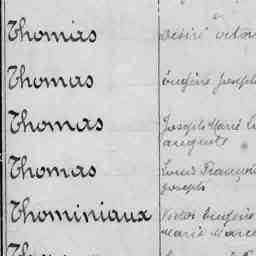 Thomas Désiré Victor
Thomas Eugène Joseph
Thomas Joseph Marie
auguste
Thomas Louis François
Joseph
Thominiaux Victor Eugène
Marie Marcel